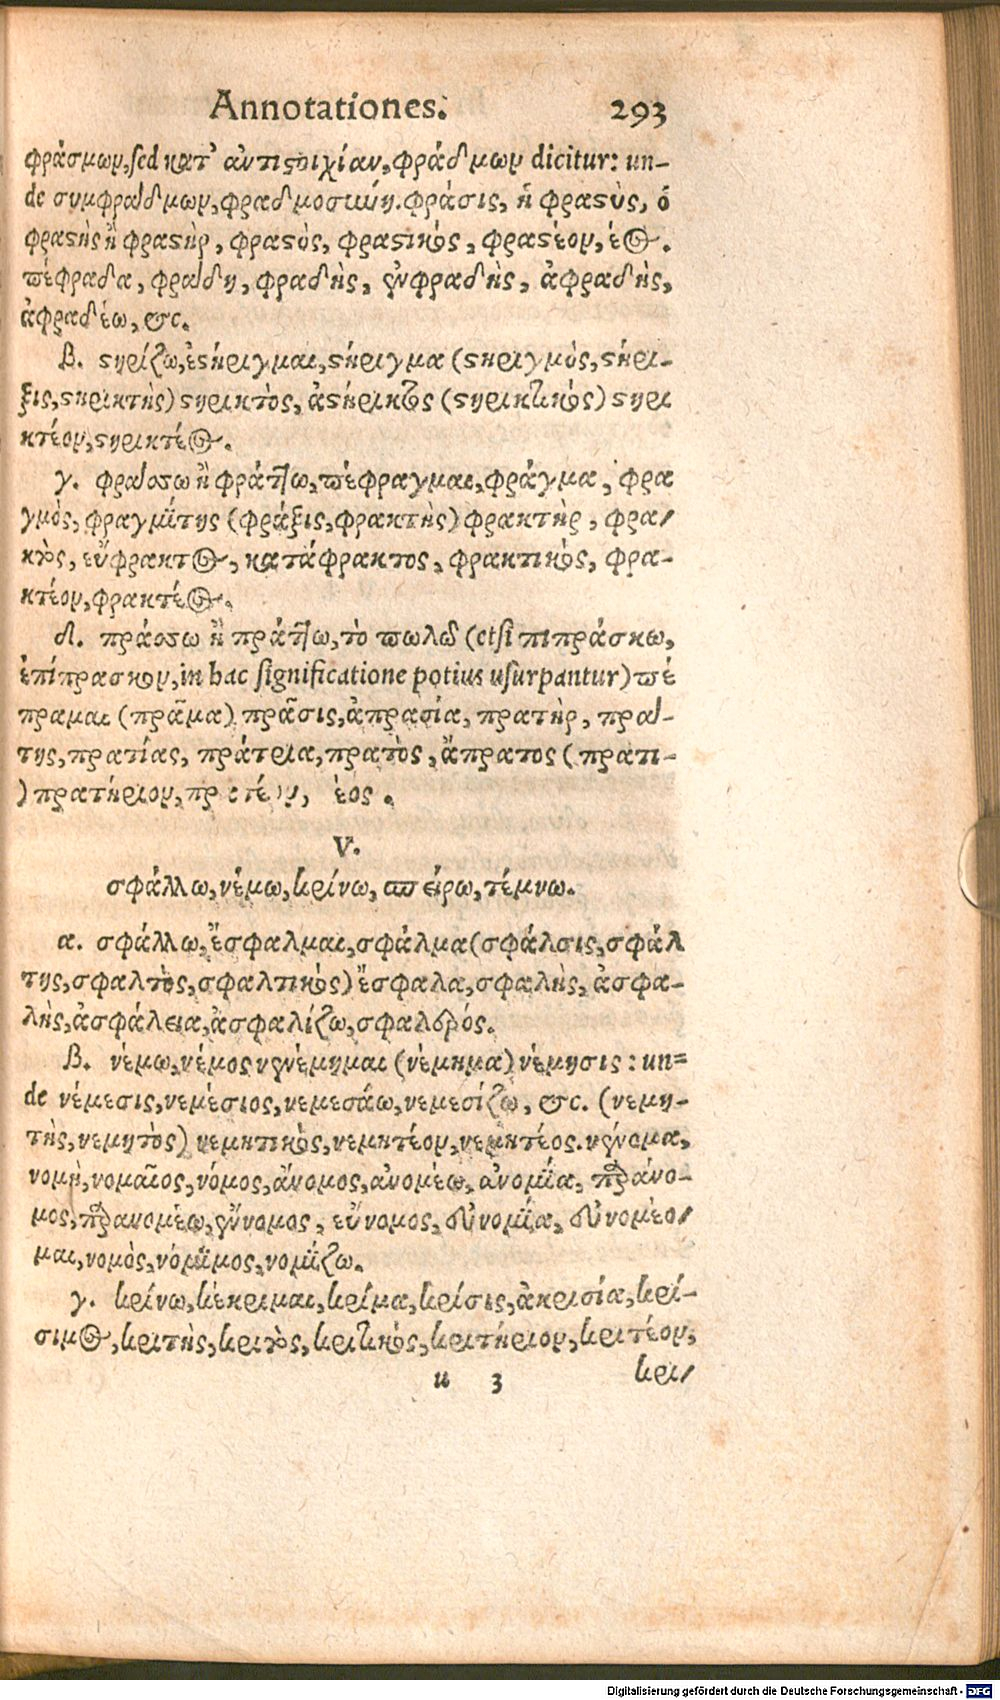 Annotationes. 293
φράσμων, sed κατ’ ἀντιστοιχίαν, φράδμων dicitur: un-
de συμφράδμων, φραδμοσύνη. φράσις, ἡ φραστὺς, ὁ
φραστὴς ἢ φραστὴρ, φραστὸς, φραστικὸς, φραστέον, έος.
πέφραδα, φράδη, φραδὴς, εὐφραδὴς, ἀφραδὴς,
ἀφραδέω, &c.
β. στηρίζω, ἐστήριγμαι, στήριγμα (στηριγμὸς, στήρι-
ξις, στηρικτὴς) στηρικτὸς, ἀστήρικτος (στηρικτικὸς) στηρι
κτέον, στηρικτέος.
γ. φράσσω ἢ φράττω, πέφραγμαι, φράγμα, φρα
γμὸς, φραγμίτης (φράξις, φρακτὴς) φρακτὴρ, φρα-
κτὸς, εὔφρακτος, κατάφρακτος, φρακτικὸς, φρα-
κτέον, φρακτέος.
δ. πράσσω ἢ πράττω, τὸ πωλῶ (etsi πιπράσκω,
ἐπίπρασκον, in hac significatione potius usurpantur) πέ
πραμαι (πρᾶμα) πρᾶσις, ἀπρασία, πρατὴρ, πρά-
της, πρατίας, πράτρια, πρατὸς, ἄπρατος (πρατι-
) πρατήριον, πρατέον, έος.
V.
σφάλλω, νέμω, κρίνω, σπείρω, τέμνω.
α. σφάλλω, ἔσφαλμαι, σφάλμα (σφάλσις, σφάλ
της, σφαλτὸς, σφαλτικὸς) ἔσφαλα, σφαλὴς, ἀσφα-
λὴς, ἀσφάλεια, ἀσφαλίζω, σφαλερός.
β. νέμω, νέμος νενέμημαι (νέμημα) νέμησις: un-
de νέμεσις, νεμέσιος, νεμεσάω, νεμεσίζω, &c. (νεμη-
τὴς, νεμητὸς) νεμητικὸς, νεμητέον, νεμητέος. νένομα,
νομὴ, νομαῖος, νόμος, ἄνομος, ἀνομέω, ἀνομία, παράνο-
μος, παρανομέω, ἔννομος, εὔνομος, εὐνομία, εὐνομέο-
μαι, νομὸς, νόμιμος, νομίζω.
γ. κρίνω, κέκριμαι, κρίμα, κρίσις, ἀκρισία, κρί-
σιμος, κριτὴς, κριτὸς, κριτικὸς, κριτήριον, κριτέον,
u 3 κρι-
Digitalisierung gefördert durch die Deutsche Forschungsgemeinschaft - DFG